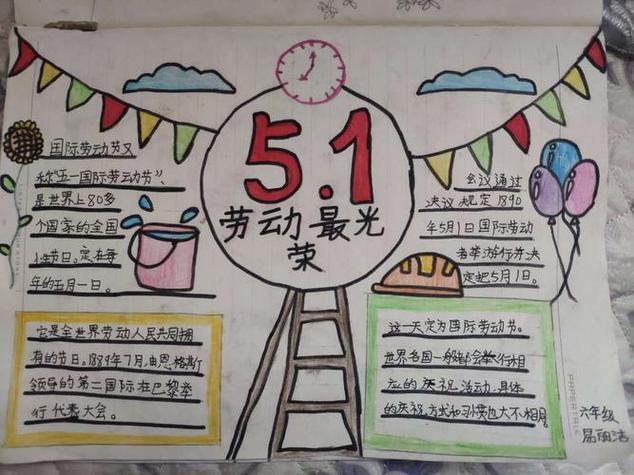 5.1
劳动最光
荣
国际劳动节又
称"五一国际劳动节"、
是世界上80多
个国家的全国
性节日。定在每
年的五月一日。
它是全世界劳动人民共同拥
有的节日。1889年7月,由恩格斯
领导的第二国际在巴黎举
行代表大会。
会议通过
决议,规定1890
年5月1日国际劳动
者举游行并决
定把5月1日。
这一天定为国际劳动节。
世界各国一般都会举行相
应的庆祝活动,具体
的庆祝方式和习惯也大不相同。
六年级
易丽洁